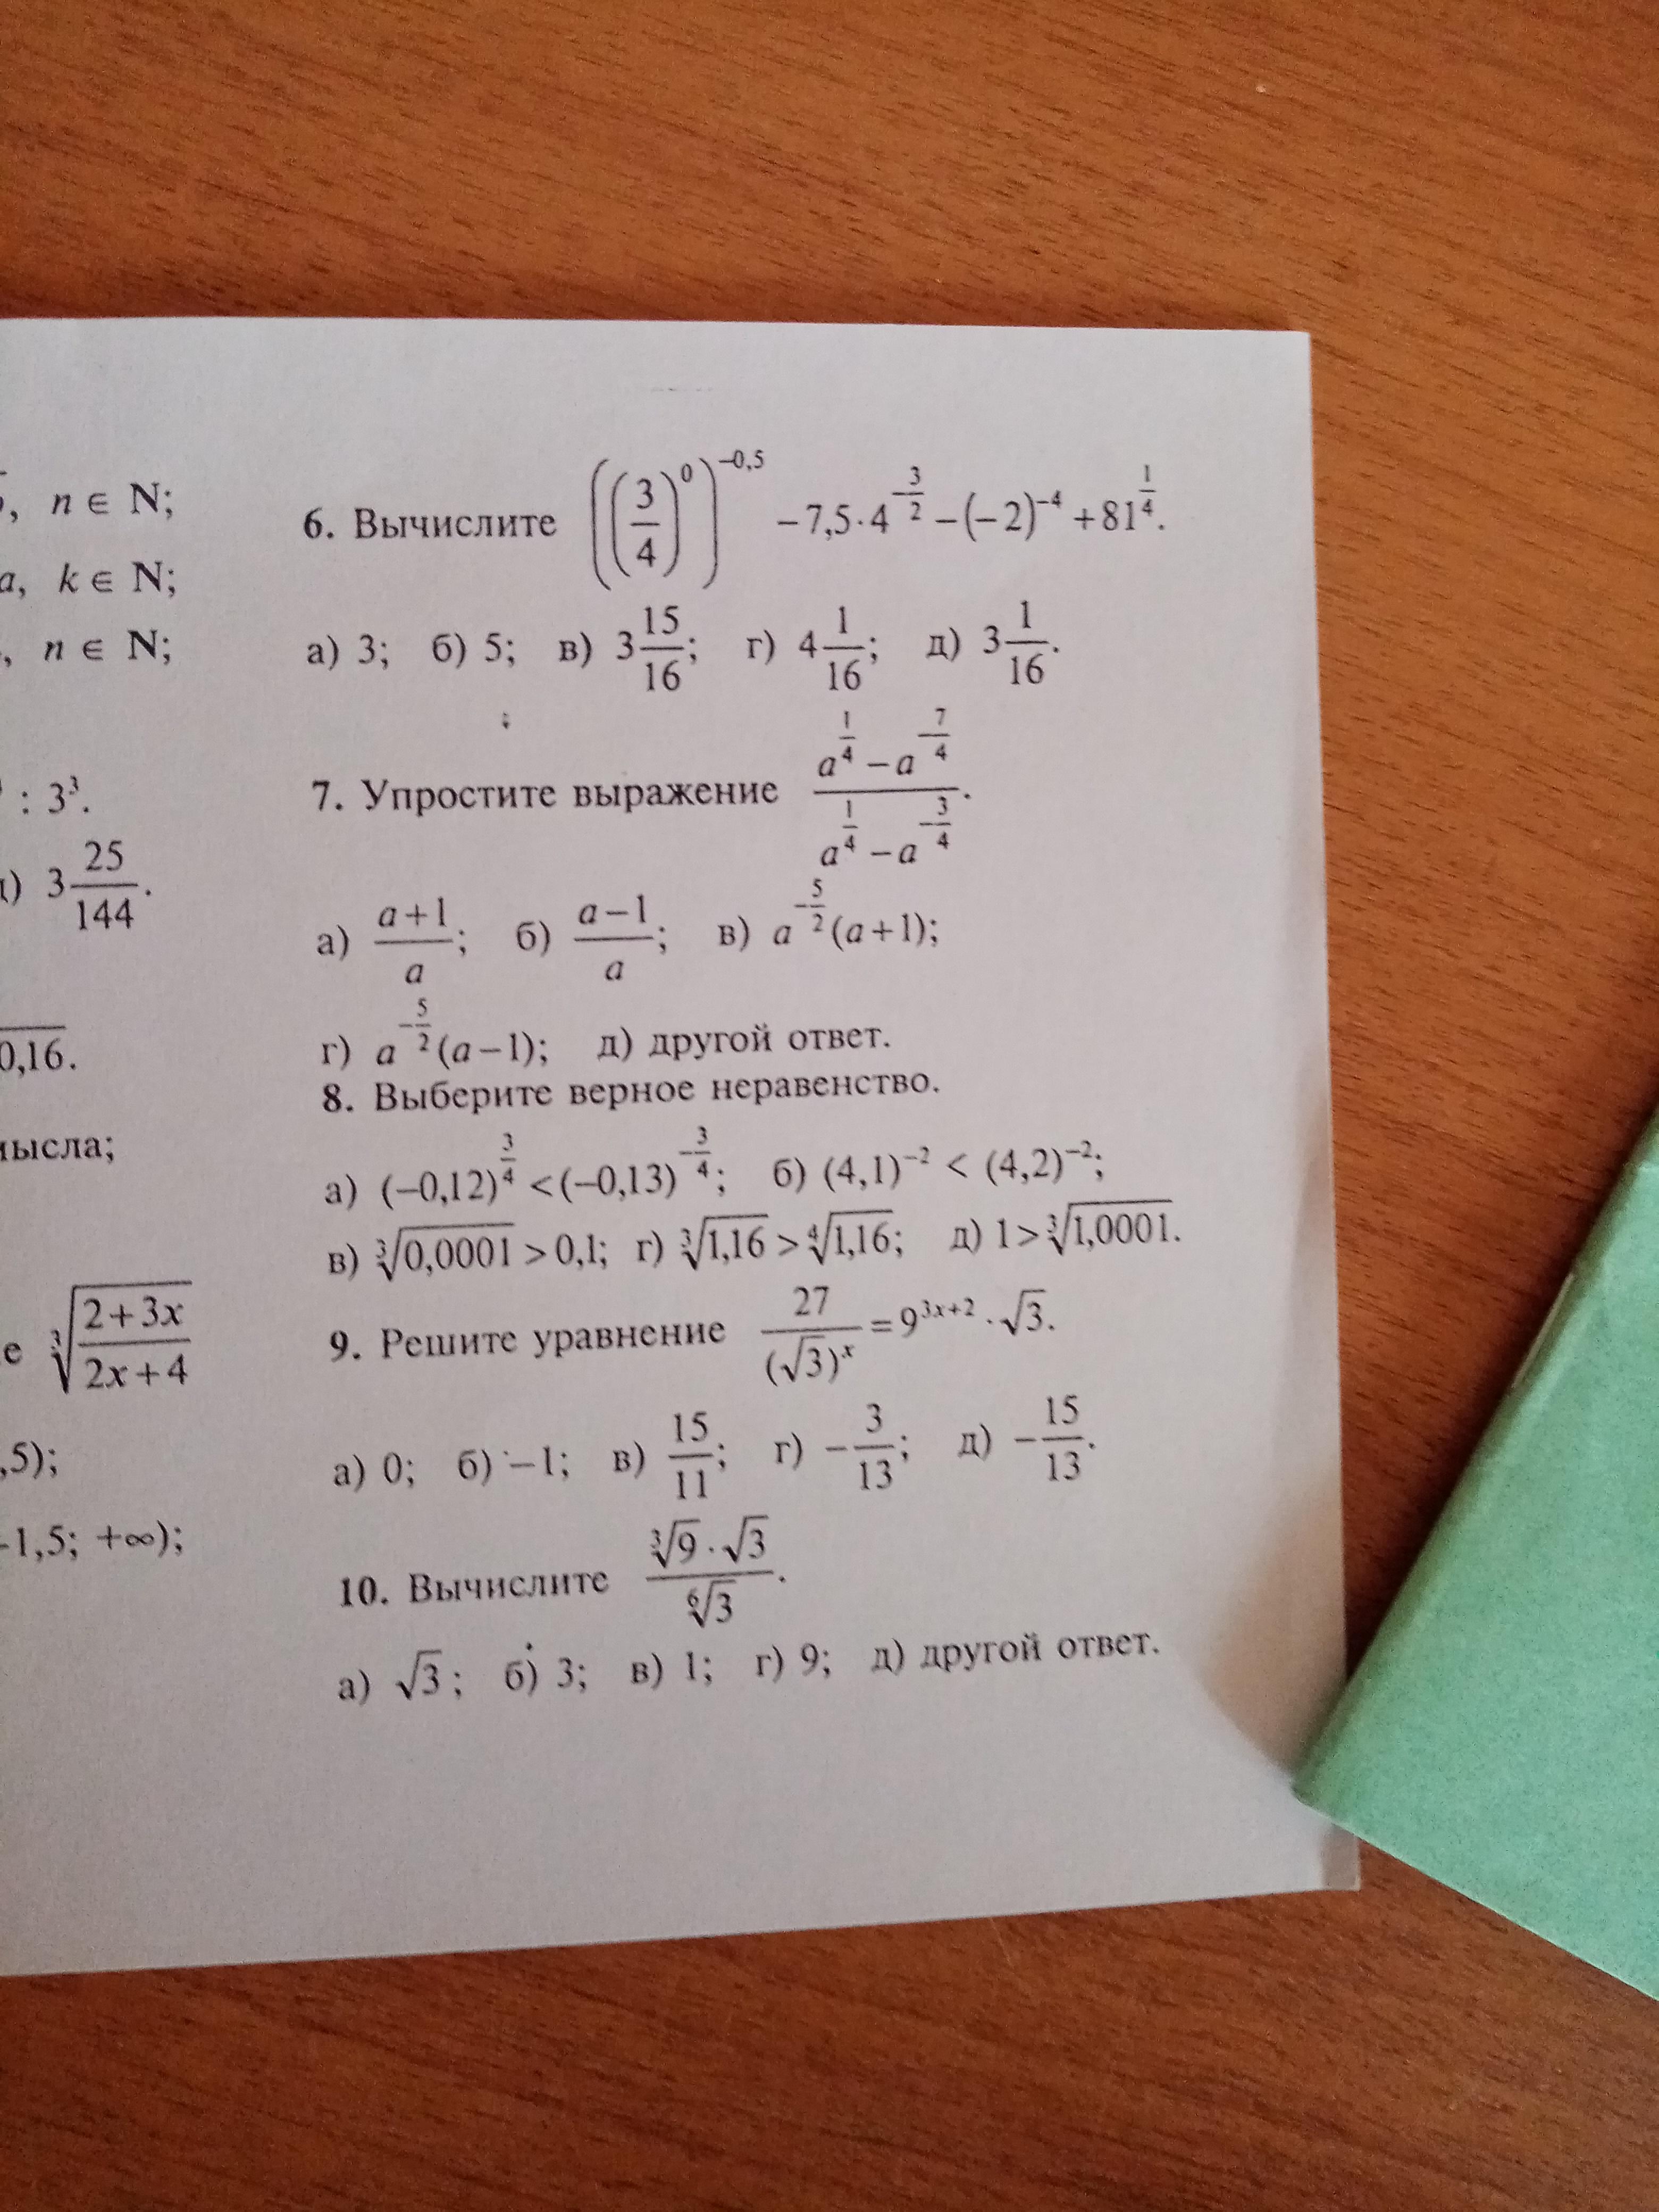 , n ∈ N;
a, k ∈ N;
, n ∈ N;
: 3³.
) 3 25/144.
0,16.
мысла;
е ∛((2+3x)/(2x+4))
,5);
-1,5; +∞);
6. Вычислите ((3/4)⁰)^(-0,5) – 7,5·4^(-3/2) – (–2)⁻⁴ + 81^(1/4).
а) 3; б) 5; в) 3 15/16; г) 4 1/16; д) 3 1/16.
7. Упростите выражение (a^(1/4) – a^(-7/4))/(a^(1/4) – a^(-3/4)).
а) (a+1)/a; б) (a–1)/a; в) a^(-5/2)(a+1);
г) a^(-5/2)(a–1); д) другой ответ.
8. Выберите верное неравенство.
а) (–0,12)^(3/4) < (–0,13)^(-3/4); б) (4,1)⁻² < (4,2)⁻²;
в) ∛0,0001 > 0,1; г) ∛1,16 > ∜1,16; д) 1 > ∛1,0001.
9. Решите уравнение 27/(√3)^x = 9^(3x+2) · √3.
а) 0; б) –1; в) 15/11; г) –3/13; д) –15/13.
10. Вычислите (∛9 · √3)/⁶√3.
а) √3; б) 3; в) 1; г) 9; д) другой ответ.